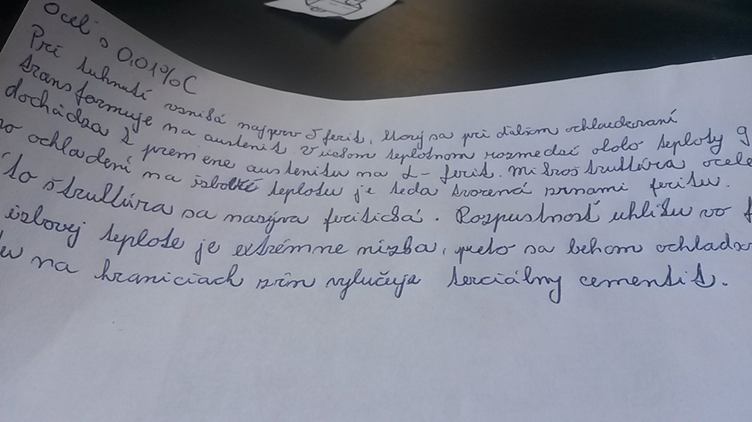 Oceľ s 0,01% C
Pri tuhnutí vzniká najprv δ ferit, ktorý sa pri ďalšom ochladzovaní
transformuje na austenit v úzkom teplotnom rozmedzí okolo teploty 9
dochádza k premene austenitu na α-ferit. mikroštruktúra ocele
ochladení na izbovú teplotu je teda tvorená zrnami feritu.
to štruktúra sa nazýva feritická. Rozpustnosť uhlíku vo f
izbovej teplote je extrémne nízka, preto sa behom ochladzo
na hraniciach zŕn vylučuje terciálny cementit.